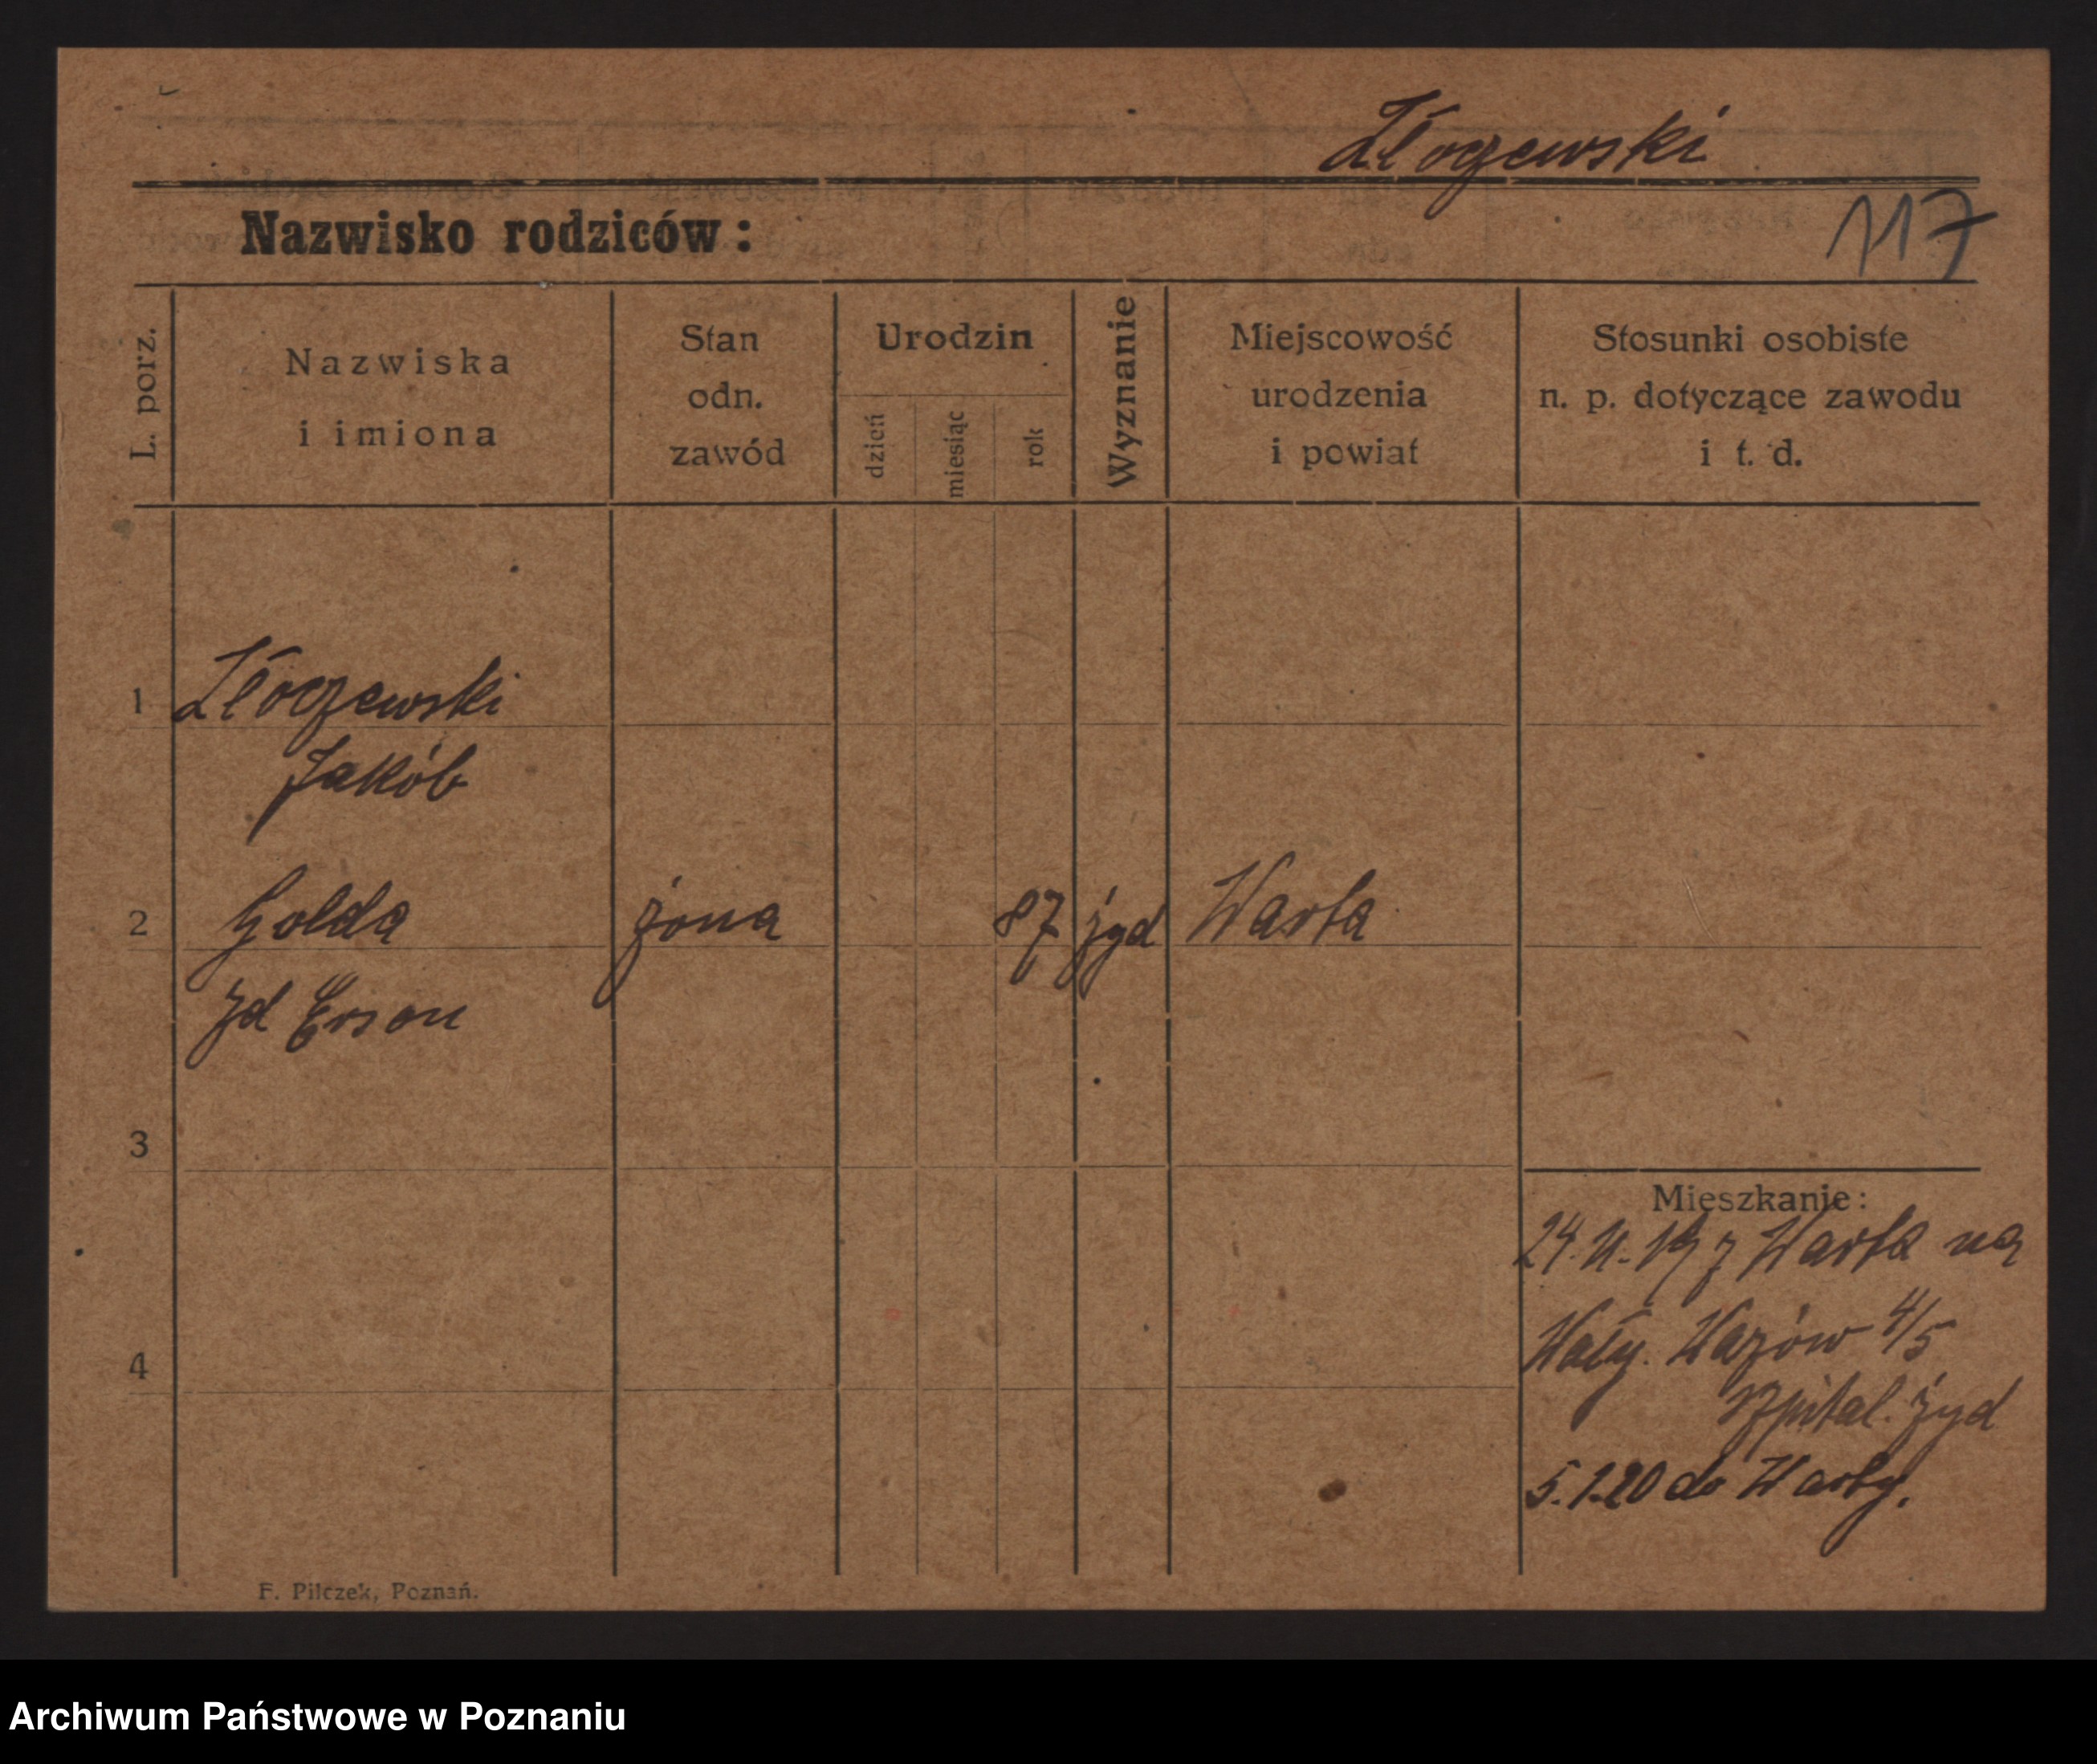 Złoczewski
117
Nazwisko rodziców:
L. porz.
Nazwiska
i imiona
Stan
odn.
zawód
Urodzin
dzień
miesiąc
rok
Wyznanie
Miejscowość
urodzenia
i powiat
Stosunki osobiste
n. p. dotyczące zawodu
i t. d.
1 Złoczewski
Jakób
2 Golda żona 87 żyd Warta
zd
3
4
Mieszkanie:
24. 11. 19 z Warta na
Wały. Wazów 4/5
szpital. żyd
5.1.20 do Warty.
F. Pilczek, Poznań.
Archiwum Państwowe w Poznaniu